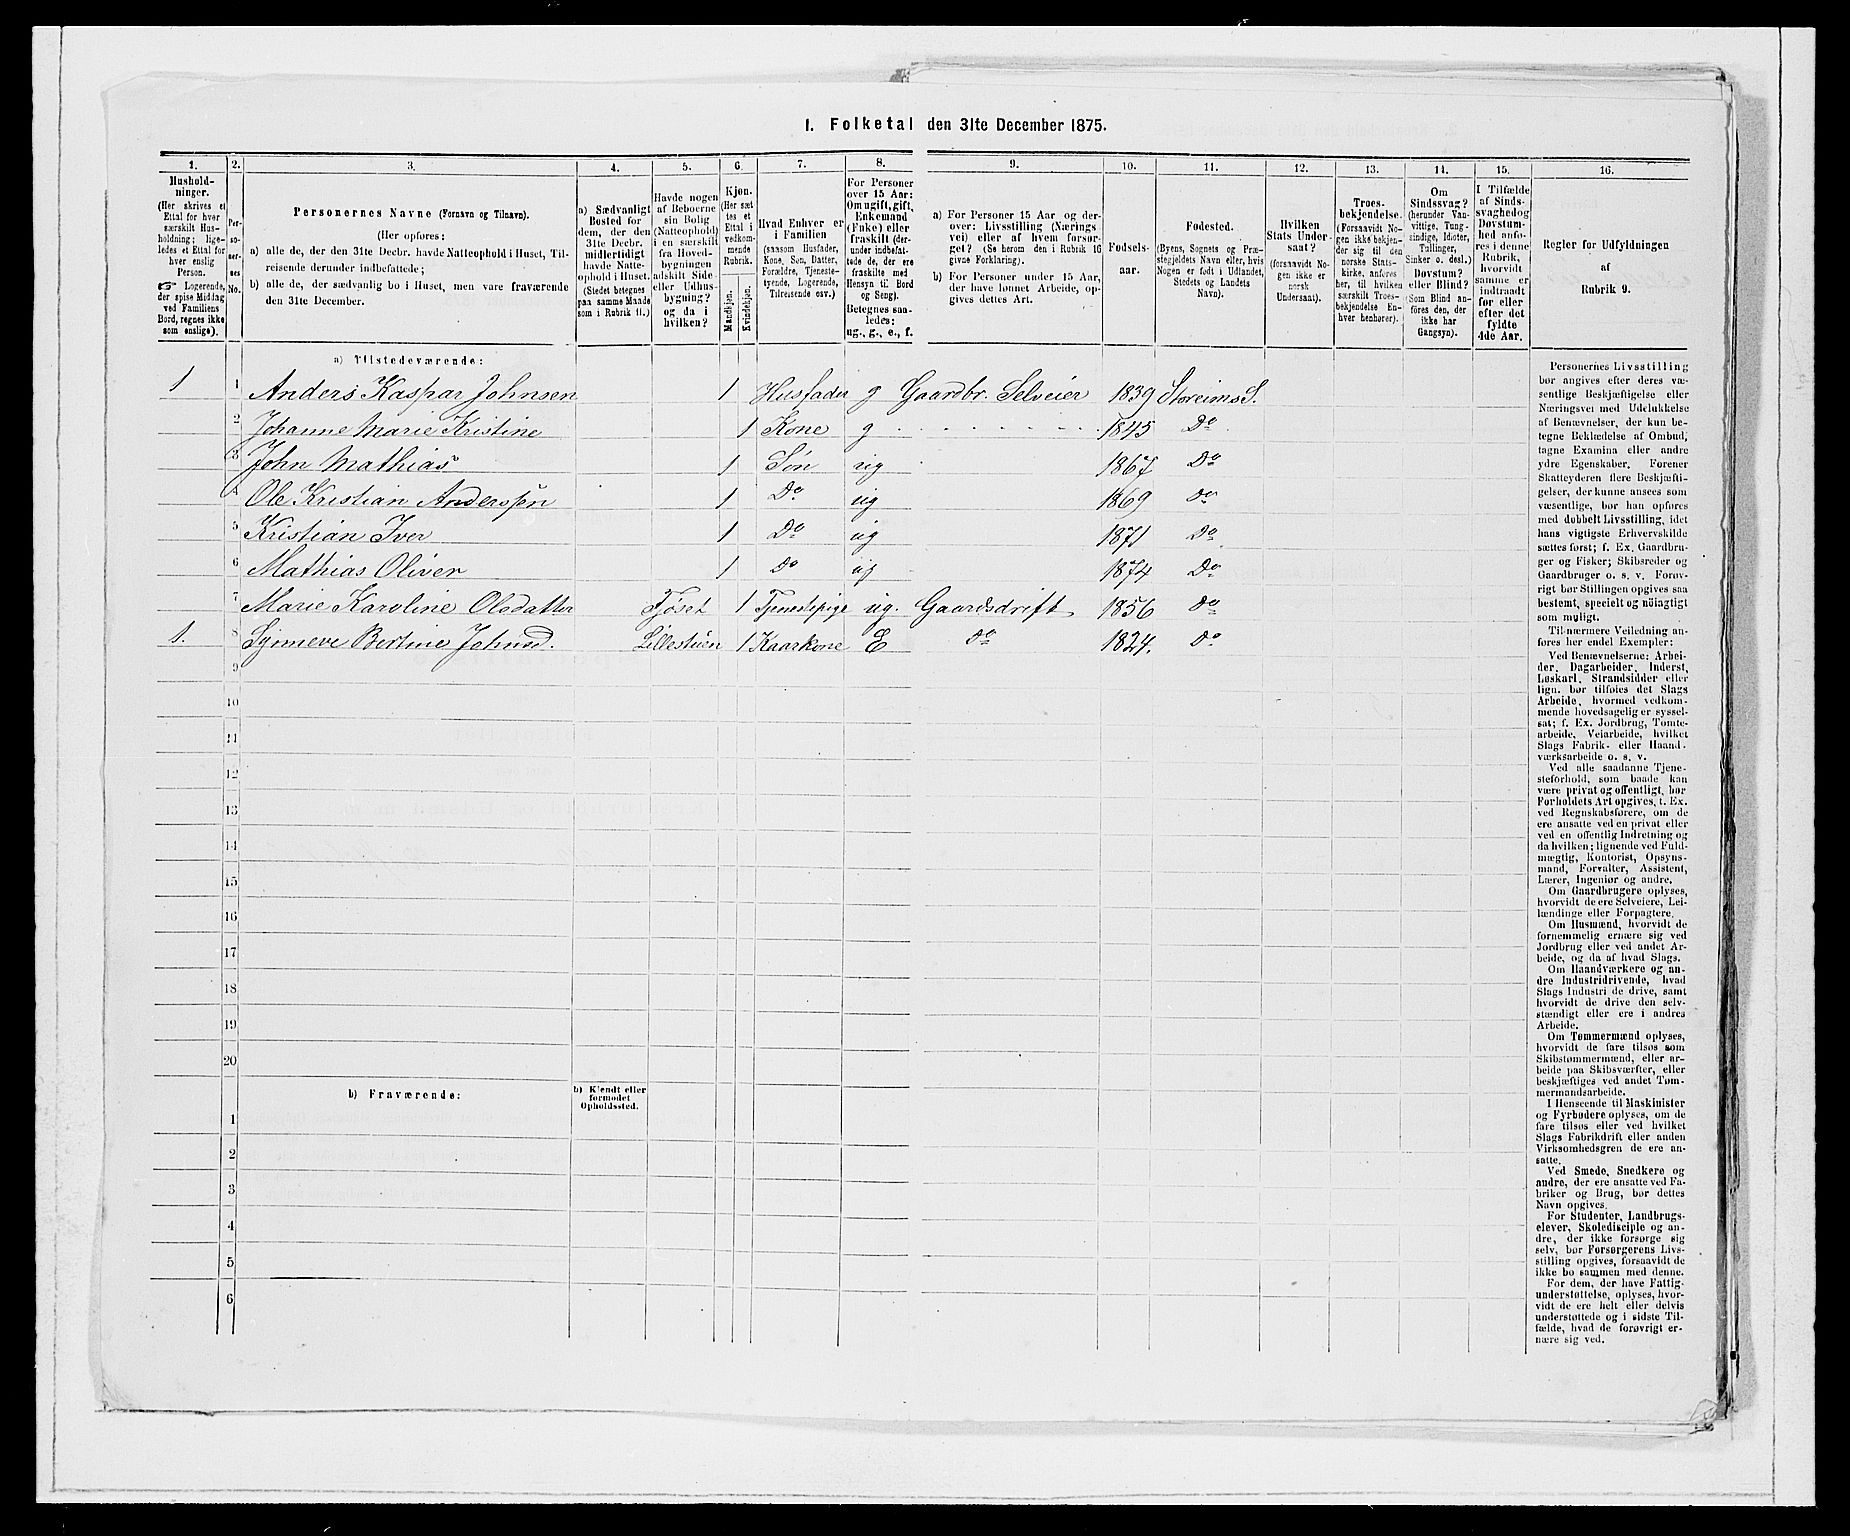 I. Folketal den 31te December 1875.
1. 2. 3. 4. 5. 6. 7. 8. 9. 10. 11. 12. 13. 14. 15. 16.
Hushold-
ninger.
(Her skrives et
Ettal for hver
særskilt Hus-
holdning; lige-
ledes et Ettal for
hver enslig
Person.
☞ Logerende,
der spise Middag
ved Familiens
Bord, regnes ikke
som enslige).
Per-
so-
ner-
nes
No.
Personernes Navne (Fornavn og Tilnavn).
(Her opføres:
a) alle de, der den 31te Decbr. havde Natteophold i Huset, Til-
reisende derunder indbefattede;
b) alle de, der sædvanlig bo i Huset, men vare fraværende
den 31te December.
a) Sædvanligt
Bosted for
dem, der den
31te Decbr.
midlertidigt
havde Natte-
ophold i Huset.
(Stedet betegnes
paa samme Maade
som i Rubrik 11.)
Havde nogen
af Beboerne
sin Bolig
(Natteophold)
i en særskilt
fra Hoved-
bygningen
adskilt Side-
eller Udhus-
bygning?
og da i
hvilken?
Kjøn.
(Her sæt-
tes et
Ettal i
vedkom-
mende
Rubrik.
Mandkjøn.
Kvindekjøn.
Hvad Enhver er
i Familien
(saasom Husfader,
Kone, Søn, Datter,
Forældre, Tjeneste-
tyende, Logerende,
Tilreisende osv.)
For Personer
over 15 Aar:
Om ugift, gift,
Enkemand
(Enke) eller
fraskilt (der-
under indbefat-
tede de, der ere
fraskilte med
Hensyn til Bord
og Seng).
Betegnes saa-
ledes:
ug., g., e., f.
a) For Personer 15 Aar og der-
over: Livsstilling (Nærings-
vei) eller af hvem forsør-
get? (Se herom den i Rubrik 16
givne Forklaring).
b) For Personer under 15 Aar,
der have lønnet Arbeide, op-
gives dettes Art.
Fødsels-
aar.
Fødested.
(Byens, Sognets og Præ-
stegjeldets Navn eller, hvis
Nogen er født i Udlandet,
Stedets og Landets
Navn).
Hvilken
Stats Under-
saat?
(forsaavidt No-
gen ikke er
norsk
Undersaat).
Troes-
bekjendelse.
(Forsaavidt No-
gen ikke bekjen-
der sig til den
norske Stats-
kirke, anføres
her, til hvilken
særskilt Troes-
bekjendelse En-
hver henhører).
Om
Sindssvag?
(herunder Van-
vittige, Tung-
sindige, Idioter,
Tullinger,
Sinker o. desl.)
Døvstum?
eller Blind?
(Som Blind an-
føres den, der
ikke har
Gangsyn).
I Tilfælde
af Sinds-
svaghed og
Døvstum-
hed anfø-
res i denne
Rubrik,
hvorvidt
samme er
indtraadt
før eller
efter det
fyldte
4de Aar.
Regler for Udfyldningen
af
Rubrik 9.
a) Tilstedeværende:
1 1 Anders Kaspar Johnsen 1 Husfader g Gaardbr. Selveier 1839 Storeims S.
2 Johanne Marie Kristine 1 Kone g 1845 Do
3 John Mathias 1 Søn ug 1867 Do
4 Ole Kristian Anderssen 1 Do ug 1869 Do
5 Kristian Iver 1 Do ug 1871 Do
6 Mathias Oliver 1 Do ug 1874 Do
7 Marie Karoline Olsdatter Fjöset 1 Tjenestepige ug. Gaardsdrift 1856 Do
1. 8 Synneve Bertine Johnsd. Lillestuen 1 Kaarkone E Do 1824. Do
9
10
11
12
13
14
15
16
17
18
19
20
b) Fraværende:
b) Kjendt eller
formodet
Opholdssted.
1
2
3
4
5
6
Personernes Livsstilling
bør angives efter deres væ-
sentlige Beskjæftigelse eller
Næringsvei med Udelukkelse
af Benævnelser, der kun be-
tegne Beklædelse af Ombud,
tagne Examina eller andre
ydre Egenskaber. Forener
Skatteyderen flere Beskjæfti-
gelser, der kunne ansees som
væsentlige, bør han opføres
med dobbelt Livsstilling, idet
hans vigtigste Erhvervskilde
sættes først; f. Ex. Gaardbru-
ger og Fisker; Skibsreder og
Gaardbruger o. s. v. Forøv-
rigt bør Stillingen opgives saa
bestemt, specielt og nöiagtigt
som muligt.
Til nærmere Veiledning an-
føres her endel Exempler:
Ved Benævnelserne: Arbei-
der, Dagarbeider, Inderst,
Løskarl, Strandsidder eller
lign. bør tilføies det Slags
Arbeide, hvormed vedkom-
mende hovedsagelig er syssel-
sat; f. Ex. Jordbrug, Tomte-
arbeide, Veiarbeide, hvilket
Slags Fabrik- eller Haand-
værksarbeide o. s. v.
Ved alle saadanne Tjene-
steforhold, som baade kan
være privat og offentligt, bør
Forholdets Art opgives, t. Ex.
ved Regnskabsførere, om de
ere ansatte ved en privat eller
ved en offentlig Indretning og
da hvilken; lignende ved Fuld-
mægtig, Kontorist, Opsyns-
mand, Forvalter, Assistent,
Lærer, Ingeniør og andre.
Om Gaardbrugere oplyses,
hvorvidt de ere Selveiere, Lei-
lændinge eller Forpagtere.
Om Husmænd, hvorvidt de
fornemmelig ernære sig ved
Jordbrug eller ved andet Ar-
beide, og da af hvad Slags.
Om Haandværkere og an-
dre Industridrivende, hvad
Slags Industri de drive, samt
hvorvidt de drive den selv-
stændigt eller ere i andres
Arbeide.
Om Tømmermænd oplyses,
hvorvidt de fare tilsøs som
Skibstømmermænd, eller ar-
beide paa Skibsværfter, eller
beskjæftiges ved andet Tøm-
mermandsarbeide.
I Henseende til Maskinister
og Fyrbødere oplyses, om de
fare tilsøs eller ved hvilket
Slags Fabrikdrift eller anden
Virksomhedsgren de ere an-
satte.
Ved Smede, Snedkere og
andre, der ere ansatte ved Fa-
briker og Brug, bør dettes
Navn opgives.
For Studenter, Landbrugs-
elever, Skoledisciple og an-
dre, der ikke forsørge sig
selv, bør Forsørgerens Livs-
stilling opgives, forsaavidt de
ikke bo sammen med denne.
For dem, der have Fattig-
understøttelse, oplyses, hvor-
vidt de ere helt eller delvis
understøttede og i sidste Til-
fælde, hvad de forøvrigt er-
nære sig ved.